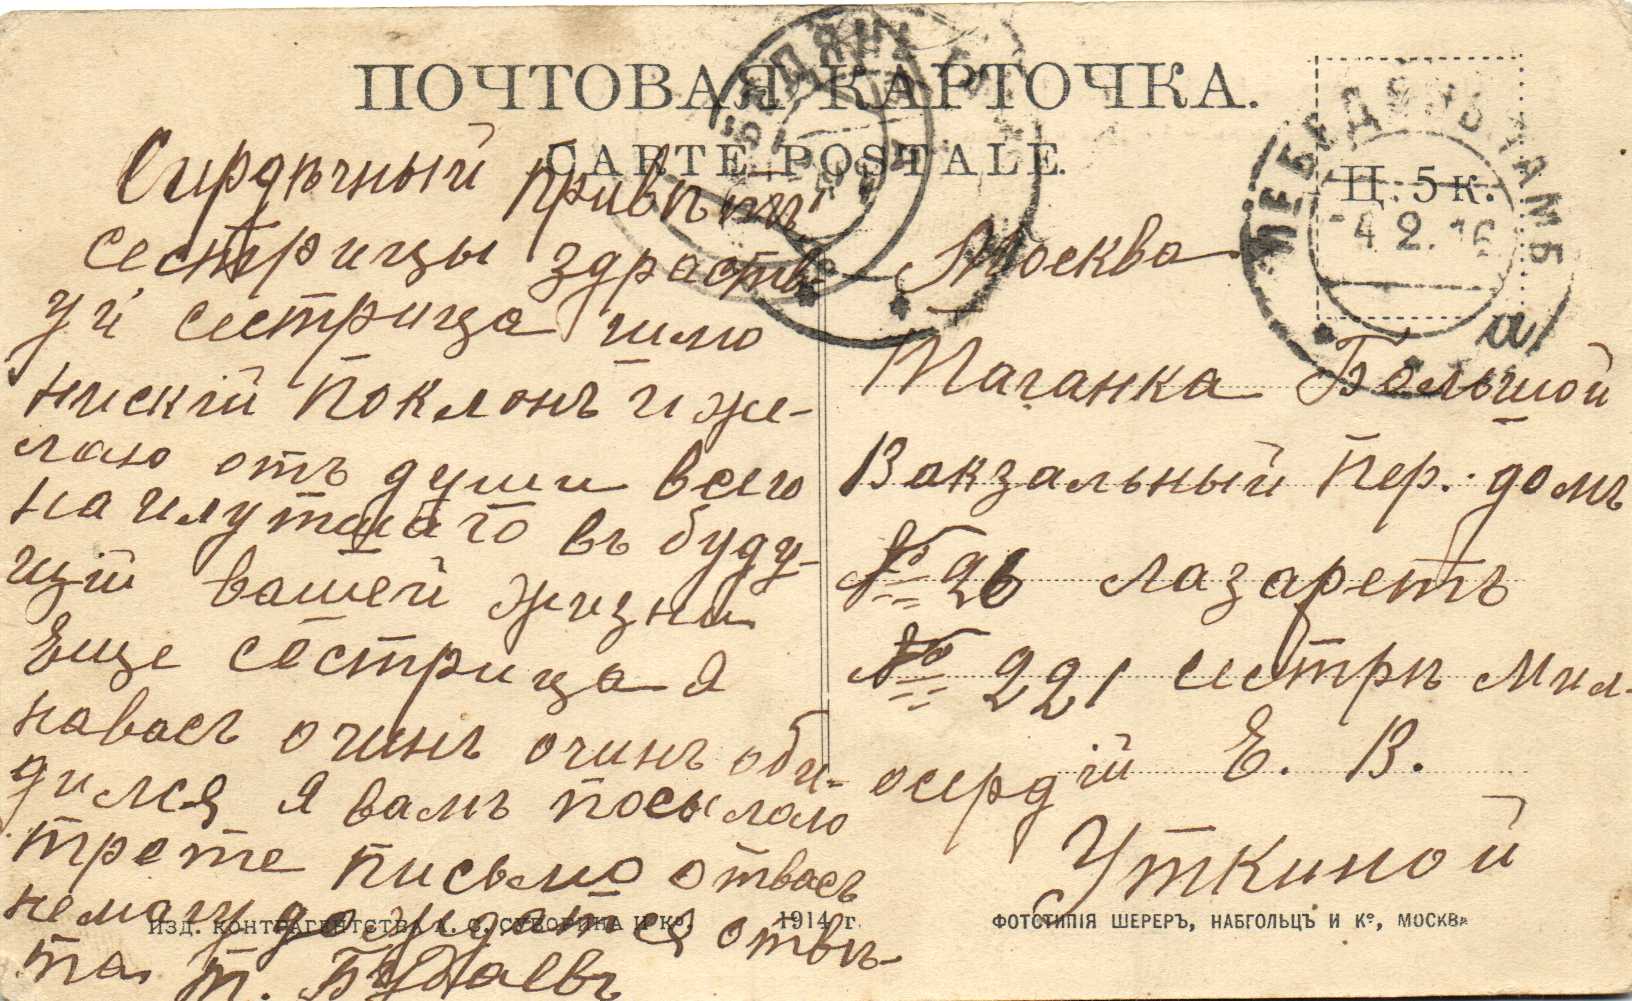 ПОЧТОВАЯ КАРТОЧКА.
CARTE POSTALE.
Ц. 5 к.
ЛЕБЕДЯНЬ ТАМБ
4 2. 16
а
Сирдѣчный привѣтъ
сестрицы здраств-
уй сестрица шлю
нискій поклонъ и же-
лаю отъ души всего
наилутшаго въ буду-
щій вашей жизни
Еще сестрица я
навасъ очинъ очинъ оби-
дился я вамъ посылаю
трете письмо отвасъ
немагу дождатся отвѣ-
та. Т. Будаевъ
Москва
Таганка Большой
Вакзальный пер. домъ
№ 26 лазаретъ
№ 221 сестрѣ мил-
осердій Е. В.
Уткиной
ИЗД. КОНТРАГЕНТСТВА А. С. СУВОРИНА И Кº. 1914 г.
ФОТОТИПІЯ ШЕРЕРЪ, НАБГОЛЬЦЪ И Кº, МОСКВА